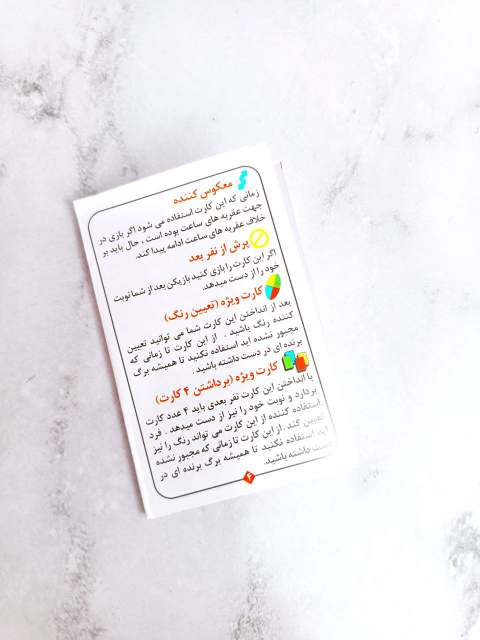 معکوس کننده
زمانی که این کارت استفاده می شود اگر بازی در
جهت عقربه های ساعت بوده است ، حال باید بر
خلاف عقربه های ساعت ادامه پیدا کند.
پرش از نفر بعد
اگر این کارت را بازی کنید بازیکن بعد از شما نوبت
خود را از دست میدهد.
کارت ویژه (تعیین رنگ)
بعد از انداختن این کارت شما می توانید تعیین
کننده رنگ باشید . از این کارت تا زمانی که
مجبور نشده اید استفاده نکنید تا همیشه برگ
برنده ای در دست داشته باشید.
کارت ویژه (برداشتن ۴ کارت)
با انداختن این کارت نفر بعدی باید ۴ عدد کارت
بردارد و نوبت خود را نیز از دست میدهد . فرد
استفاده کننده از این کارت می تواند رنگ را نیز
تعیین کند . از این کارت تا زمانی که مجبور نشده
اید استفاده نکنید تا همیشه برگ برنده ای در
دست داشته باشید.
۴